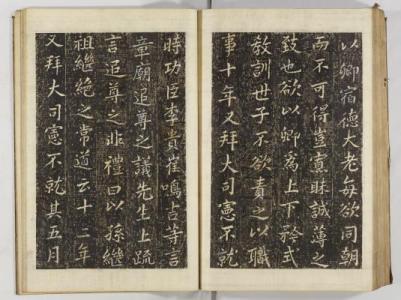 以卿宿德大老每欲同朝
而不可得豈寡昧誠薄之
致也欲以卿爲上下矜式
教訓世子不欲責之以職
事十年又拜大司憲不就
時功臣李貴崔鳴吉等言
章廟追尊之議先生上疏
言追尊之非禮曰以孫繼
祖繼絶之常道云十二年
又拜大司憲不就其五月